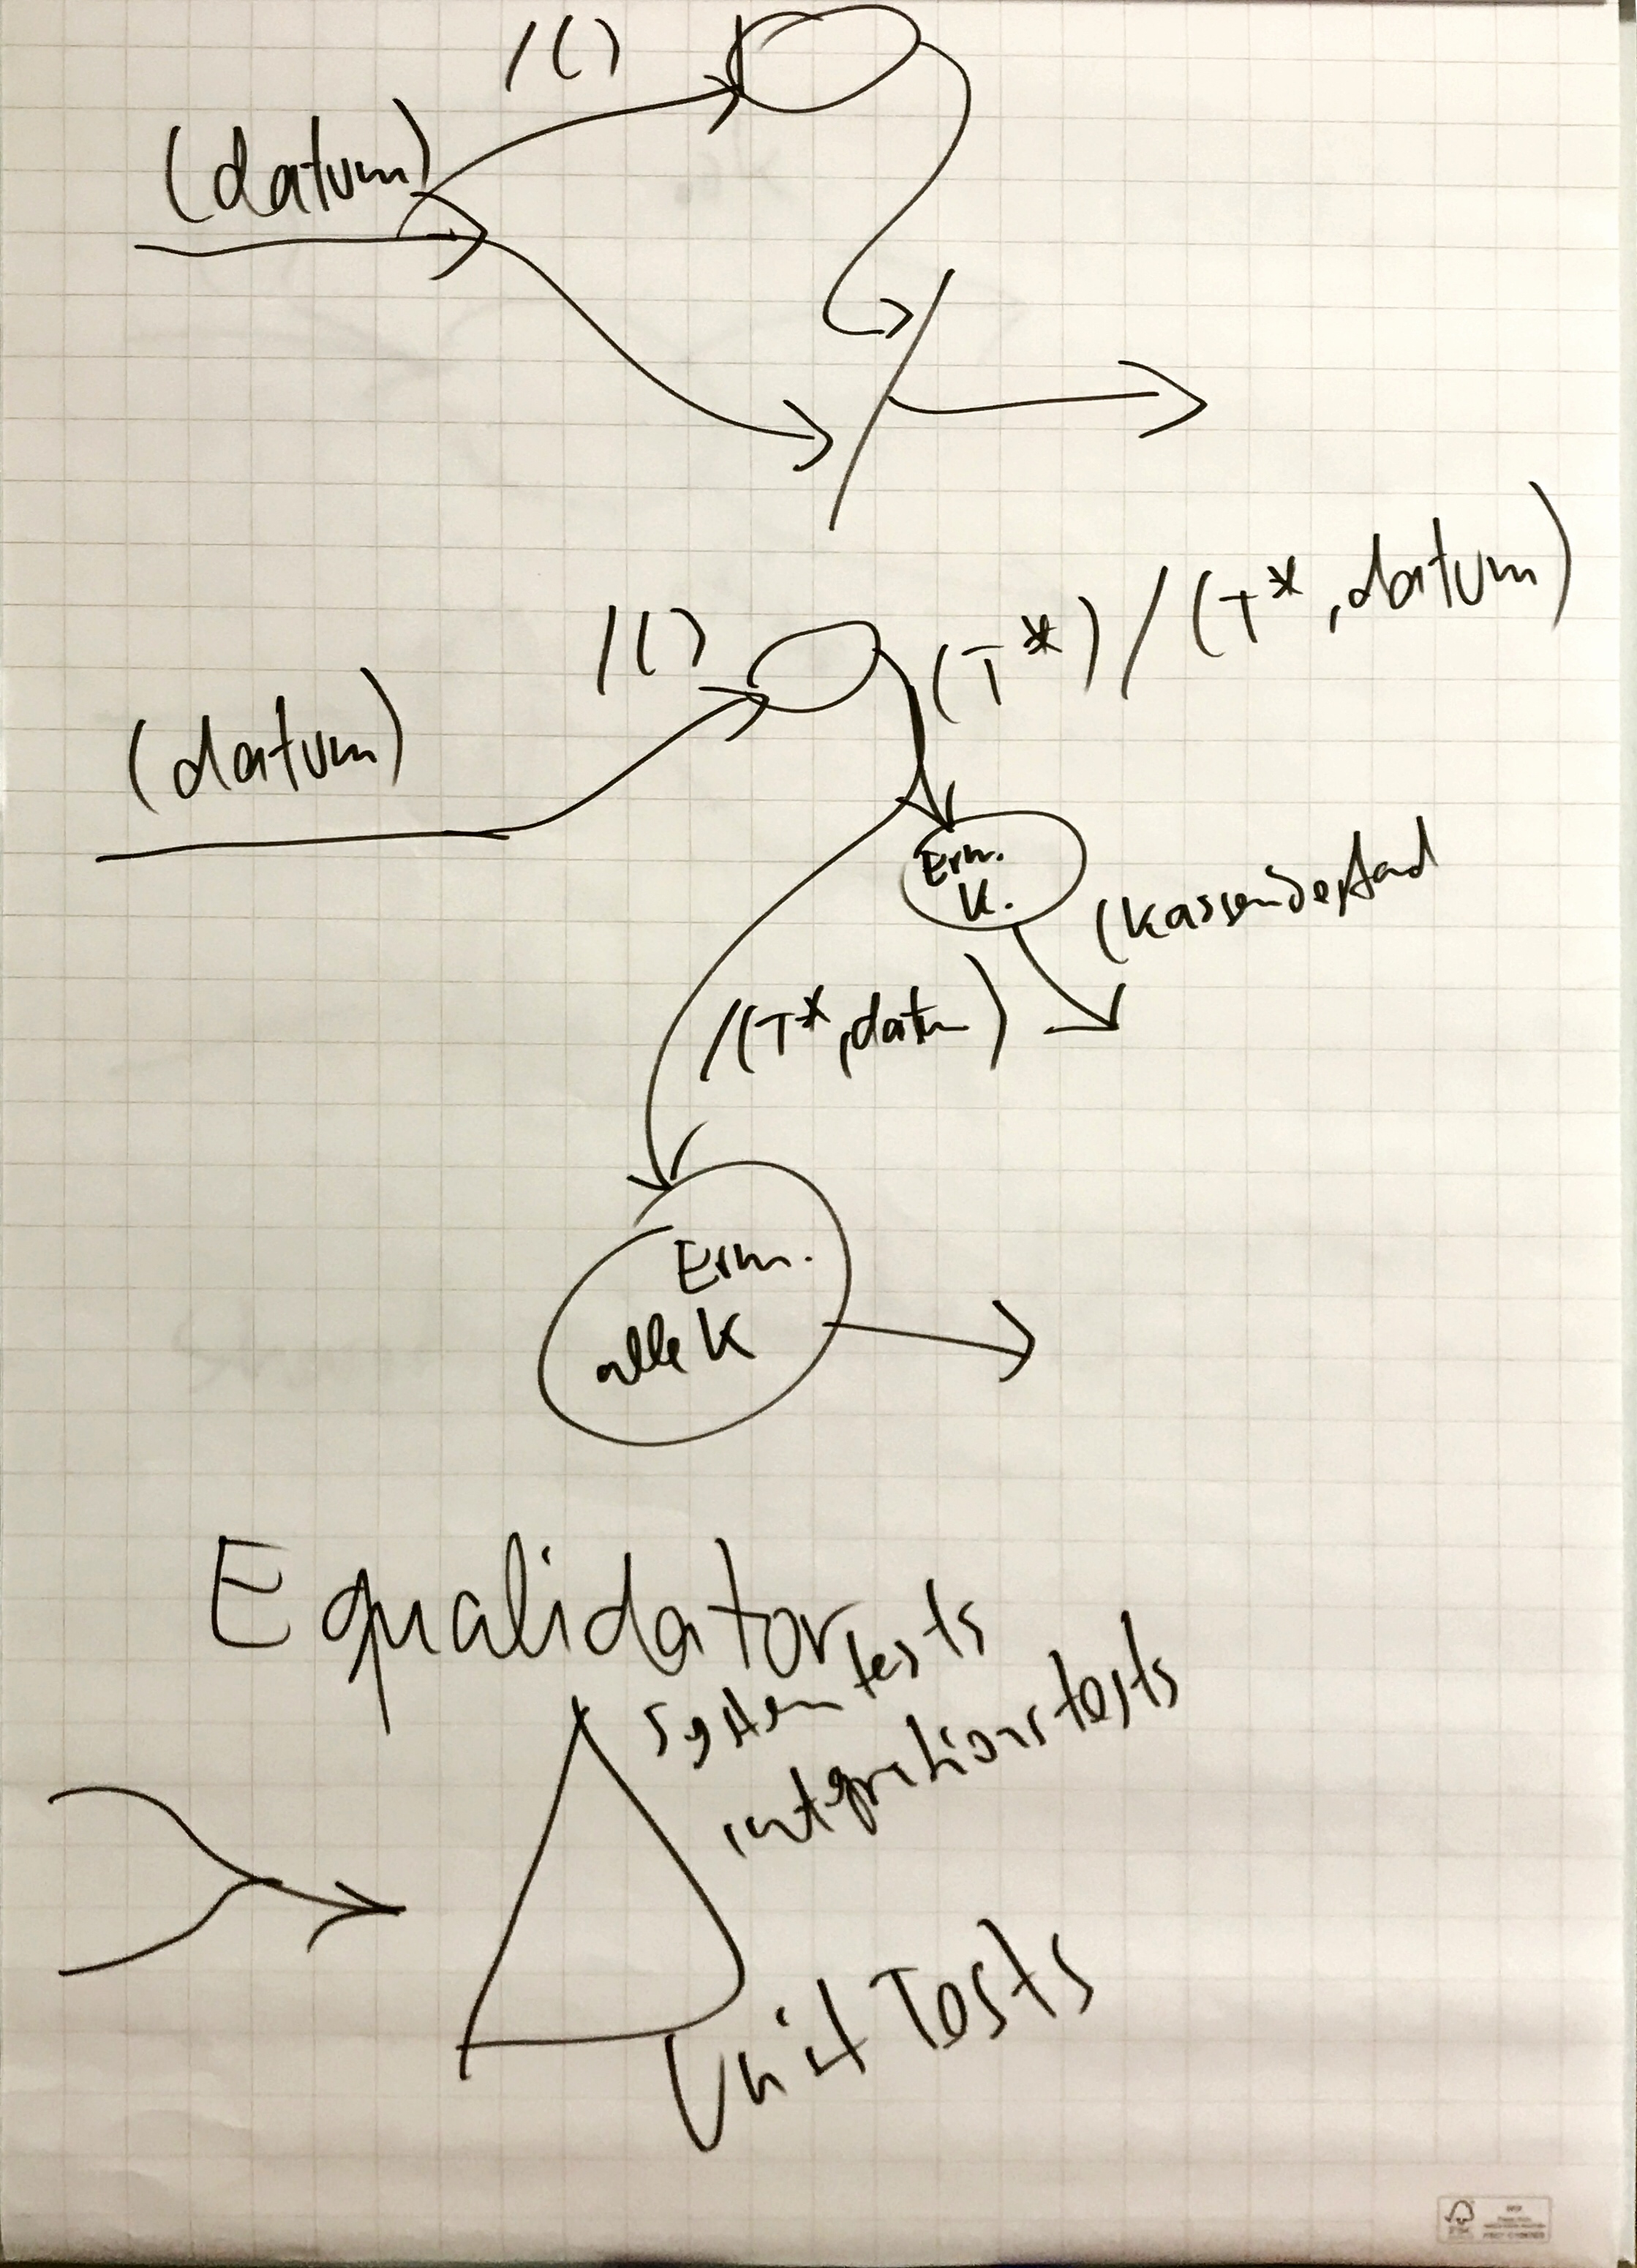 /()
(datum)
/()
(T*)/(T*,datum)
(datum)
Erm.
K.
(Kassenbestand
/(T*,datum)
Erm.
alle K
Equalidator
Systemtests
integrationstests
Unit Tests
FSC